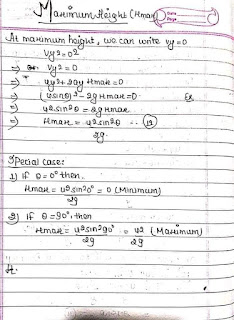 Maximum Height (Hmax)
Date
Page
At maximum height, we can write vy=0
Vy²=0²
⇒ Vy²=0
⇒ uy²+2ay Hmax=0
⇒ (usinθ)²-2gHmax=0
⇒ u²sin²θ=2gHmax
⇒ Hmax = u²sin²θ
2g
Special case:
1) if θ=0° then
Hmax = u²sin²0° = 0 (Minimum)
2g
2) if θ=90° then
Hmax = u²sin²90° = u² (Maximum)
2g 2g